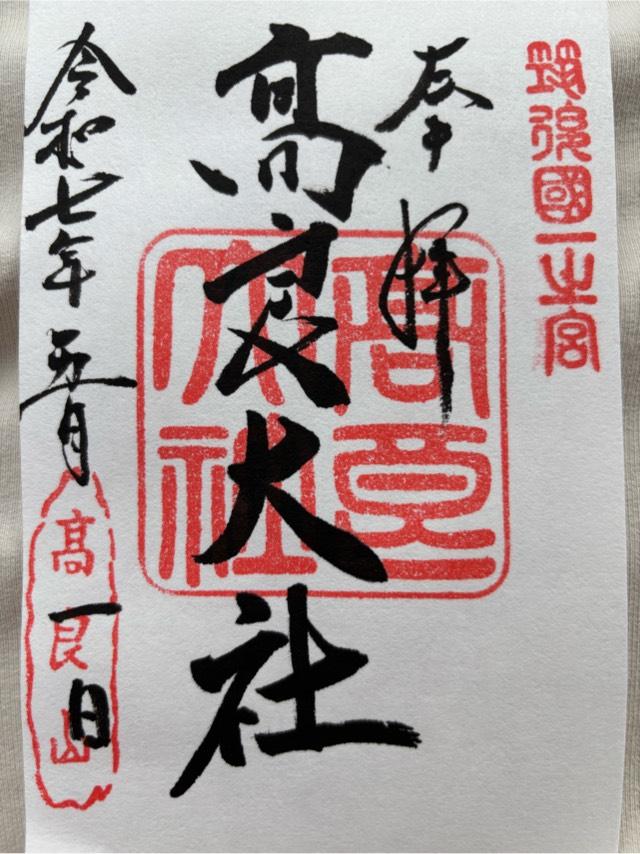 筑後國一之宮
奉拝
高良大社
髙良大社
令和七年五月一日
高良山